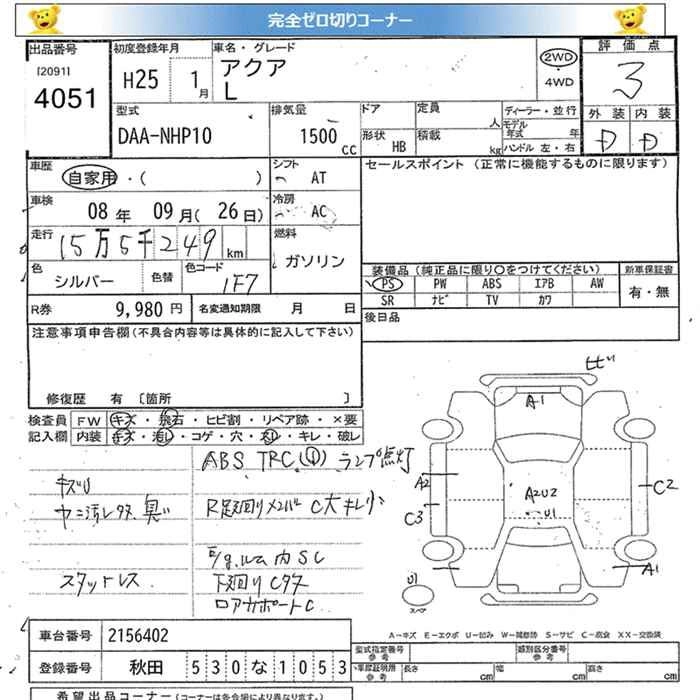 完全ゼロ切りコーナー
出品番号 初度登録年月 車名・グレード 評価点
[2091] 4051
H25 1月
アクア
L
2WD
4WD
3
型式 排気量 ドア 定員 人 ディーラー・並行
モデル年式 年
外装 内装
DAA-NHP10 1500cc
形状 HB 積載 kg ハンドル 左・右
D D
車歴 自家用・( ) シフト AT
セールスポイント (正常に機能するものに限ります)
車検 08年 09月(26日) 冷房 AC
走行 15万5千249km 燃料 ガソリン
色 シルバー 色替 色コード 1F7
装備品 (純正品に限り○をつけてください) 新車保証書
PS PW ABS エアB AW 有・無
SR ナビ TV カワ
R券 9,980円 名変通知期限 月 日
後日品
注意事項申告欄 (不具合内容等は具体的に記入して下さい)
修復歴 有 [箇所 ]
検査員 FW キズ・飛石・ヒビ割・リペア跡・×要
記入欄 内装 キズ・汚レ・コゲ・穴・スレ・キレ・破レ
ABS TRC (!) ランプ点灯
キズU
R足廻りメンバー C大
E/g ルーム内 SC
スタットレス 下廻り Cタタ
ロアサポートC
ヒビ
A1
A2
C3
A2U2
U1
C2
A1
U1
スペア
A-キズ E-エクボ U-凹み W-補修跡 S-サビ C-腐食 XX-交換済
車台番号 2156402
型式指定番号 参考 類別区分番号 参考
登録番号 秋田 530な1053
車庫証明用 参考 長さ cm 幅 cm 高さ cm
希望出品コーナー (コーナーは各会場により異なります。)